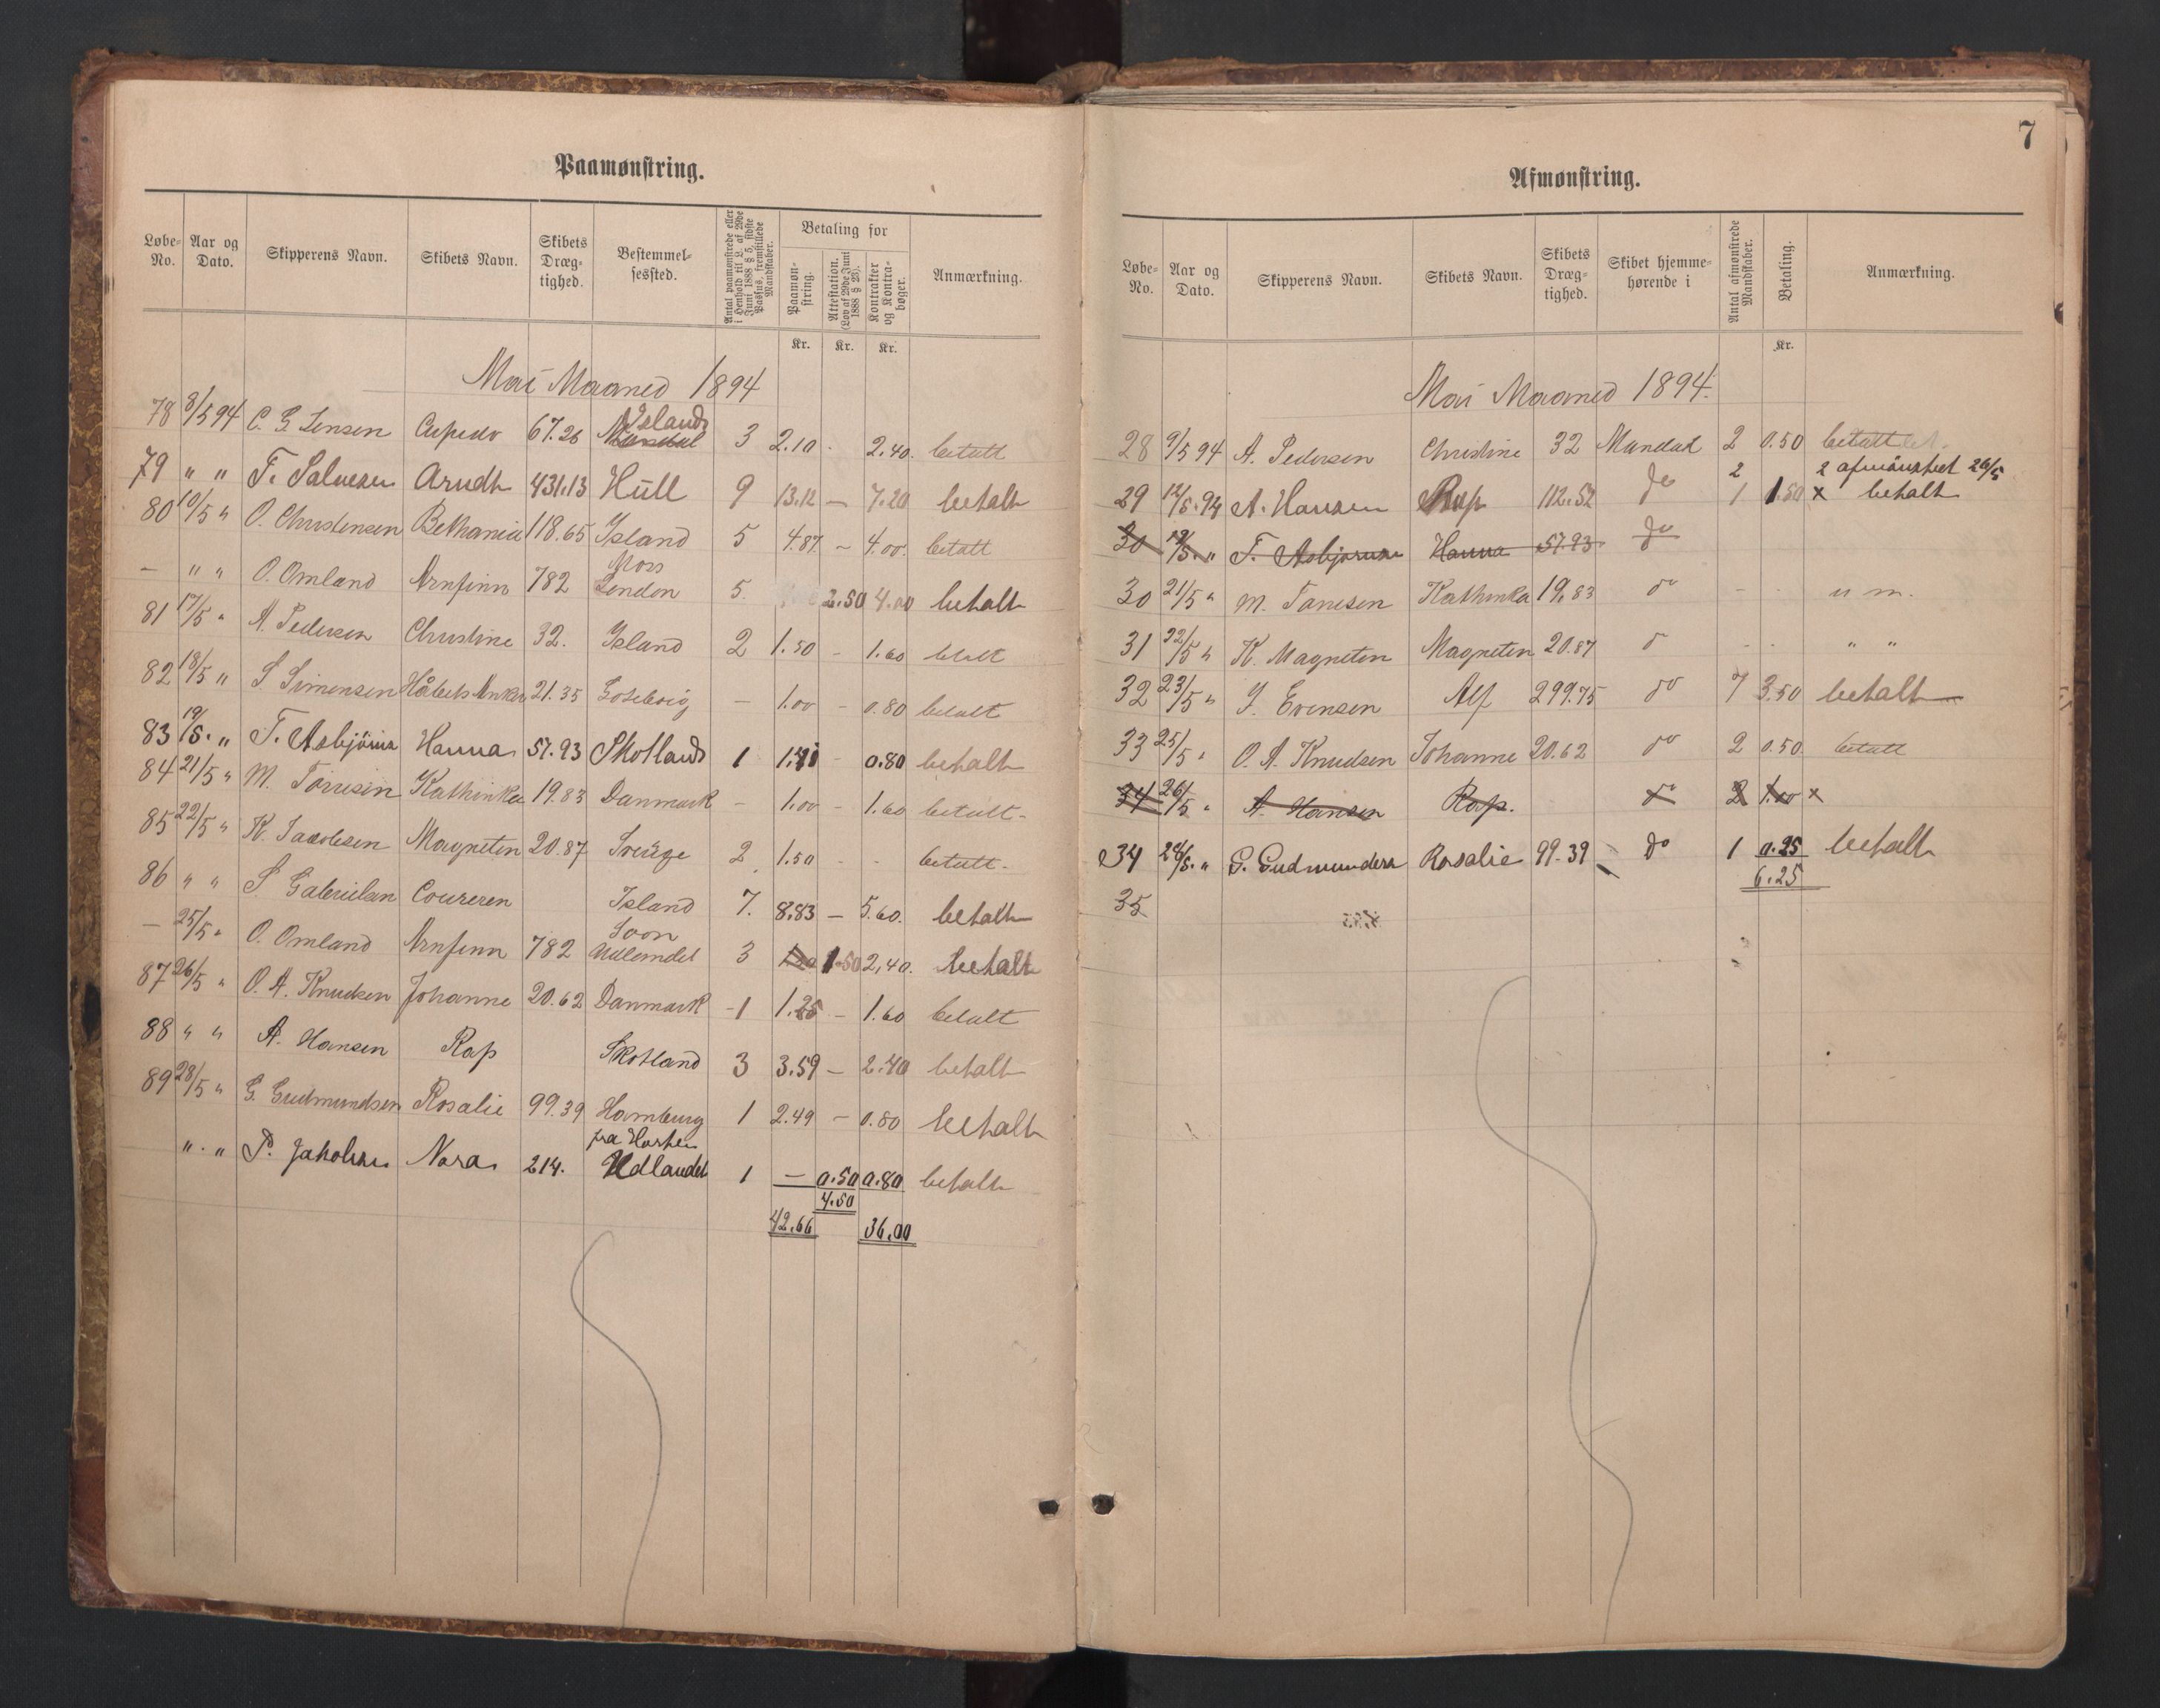 Paamønstring.
Løbe-No. Aar og Dato. Skipperens Navn. Skibets Navn. Skibets Dræg-tighed. Bestemmel-sessted. Antal paamønstrede eller i Henhold til L. af 29de Juni 1888 § 5, sidste Passus, fremstillede Mandskaber. Betaling for Paamøn-string. Attestation. (Lov af 29de Juni 1888 § 23). Kontrakter og Kontra-bøger. Anmærkning.
Kr. Kr. Kr.
Mai Maaned 1894
78 8/5 94 C. G. Jensen Cupido 67.26 Mandal Island 3 2.10 - 2.40. betalt
79 " " T. Salvesen Arndt 431.13 Hull 9 13.12 — 7.20 betalt
80 10/5 " O. Christensen Bethania 118.65 Island 5 4.87 - 4.00. betalt
— " " O. Omland Arnfinn 782 Mors London 5. 2.50 4.00 betalt
81 17/5 " A. Pedersen Christine 32. Island 2 1.50 - 1.60 betalt
82 18/5 " S. Simensen Håbets Anker 21.35 Goteborg - 1.00 - 0.80 betalt
83 19/5. " T. Asbjörns Hanna 57.93 Skotland 1 - 0.80 betalt
84 21/5 " M. Tönnesen Kathinka 19.83 Danmark - 1.00 - 1.60 betalt.
85 22/5 " K. Jacobsen Magneten 20.87 Sverige 2 1.50 - - betalt.
86 " " S. Gabrielsen Coureren Island 7. 8.83 — 5.60. betalt
— 25/5 " O. Omland Arnfinn 782 Soon Udlandet 3 1.50 2,40. betalt
87 26/5 " O. A. Knudsen Johanne 20.62 Danmark -1 1.25 - 1.60 betalt
88 " " A. Hansen Rap Skotland 3 3.59 — 2.40 betalt
89 28/5 " G. Gudmundsen Rosalie 99.39 Hamburg 1 2.49 - 0.80 betalt
" . " P. Jakobsen Nora 214. fra Horten Udlandet 1 — 0.50 0.80 betalt
4.50
42.66 36.00
7
Afmønstring.
Løbe-No. Aar og Dato. Skipperens Navn. Skibets Navn. Skibets Dræg-tighed. Skibet hjemme-hørende i Antal afmønstrede Mandskaber. Betaling. Anmærkning.
Kr.
Mai Maaned 1894.
28 9/5 94 A. Pedersen Christine 32 Mandal 2 0.50 betalt
2 2 afmönstret 26/5
29 12/5. 94 A. Hansen Rap 112.52 do 1 1.50 x betalt
30 19/5. " T. Asbjørnsen Hanna 57.93 do
30 21/5 " M. Tönnesen Kathinka 19,83 do - - u m.
31 22/5 " K. Magneten Magneten 20.87 do - - " "
32 23/5 " J. Evensen Alf 299.75 do 7 3.50 betalt
33 25/5 " O. A. Knudsen Johanne 20.62 do 2 0.50 betalt
34 26/5 " A. Hansen Rap. do 2 1.00 x
34 28/5. " G. Gudmunders Rosalie 99.39 do 1 0.25 betalt
6.25
35